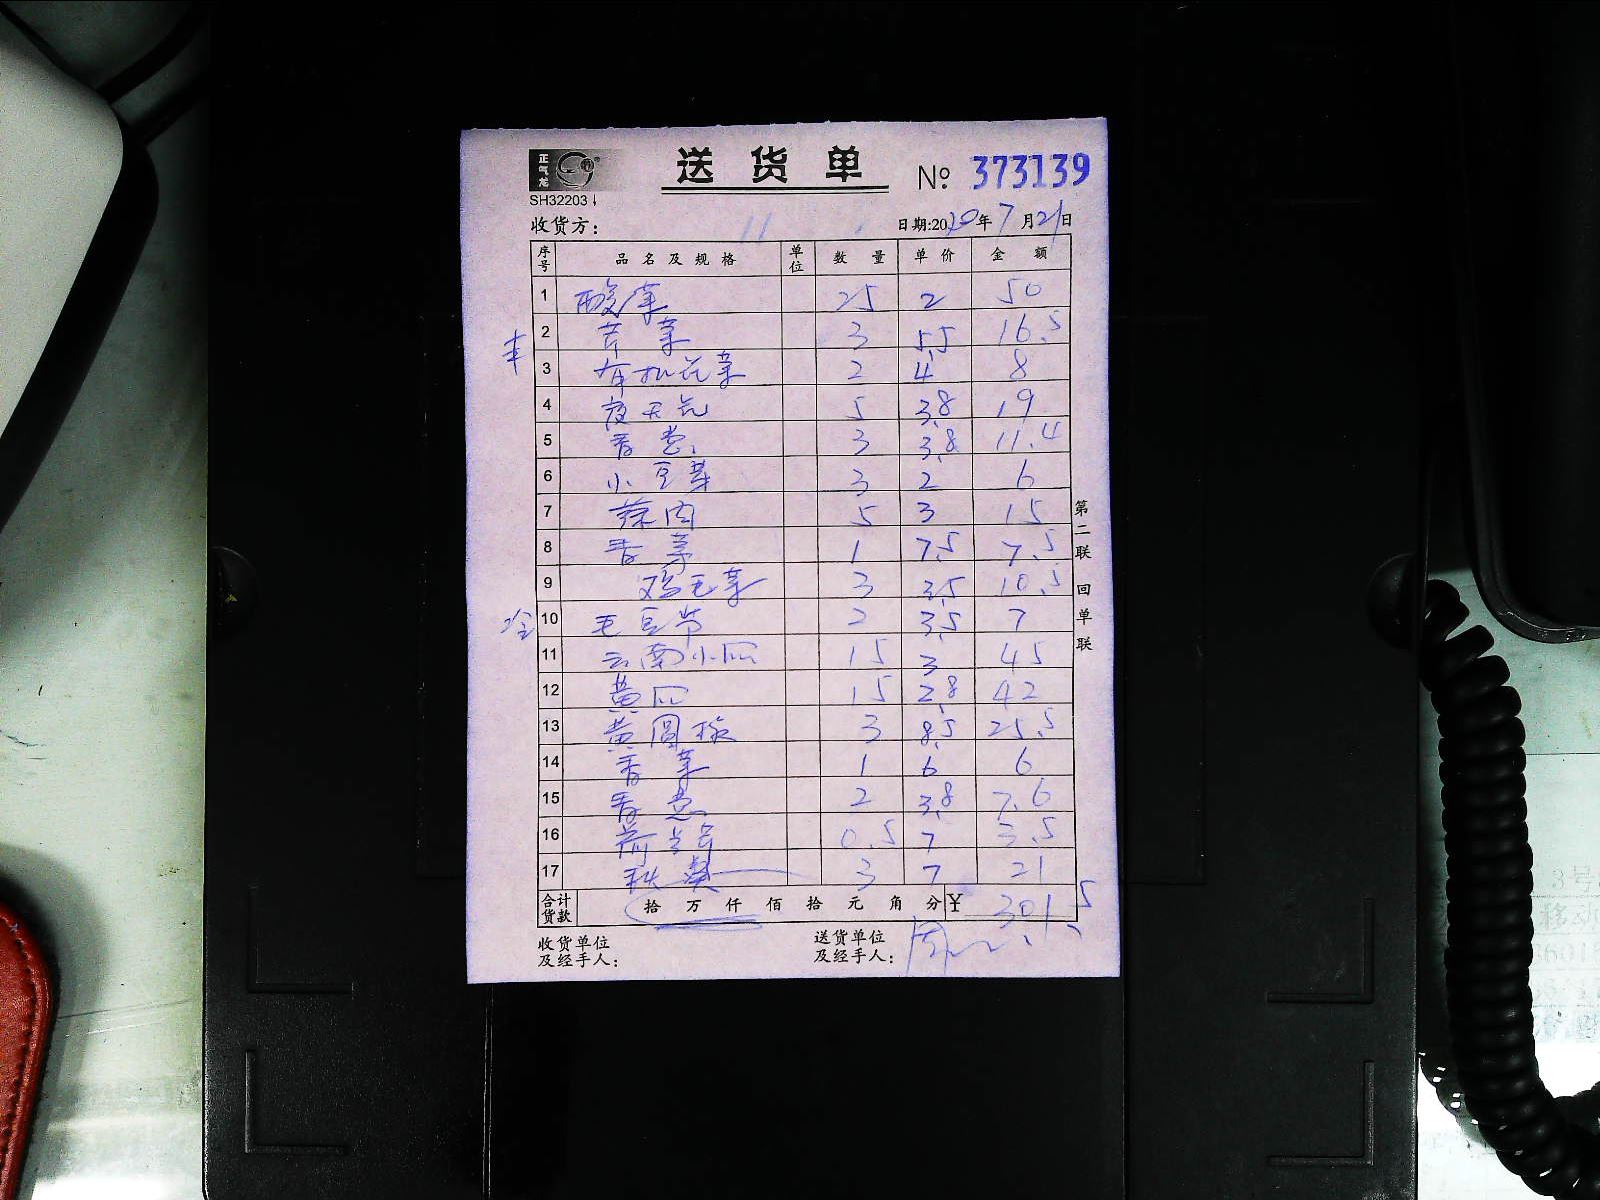 正气龙
送货单 № 373139
SH32203
收货方： 日期:2020年7月21日
序号 品名及规格 单位 数量 单价 金额
1 酸菜 25 2 50
2 芹菜 3 5.5 16.5
3 有机花菜 2 4 8
4 5 3.8 19
5 香葱 3 3.8 11.4
6 小豆芽 3 2 6
7 蒜肉 5 3 15
8 香菜 1 7.5 7.5
9 鸡毛菜 3 3.5 10.5
10 毛豆节 2 3.5 7
11 云南小瓜 15 3 45
12 黄瓜 15 2.8 42
13 黄圆椒 3 8.5 25.5
14 香菜 1 6 6
15 香葱 2 3.8 7.6
16 0.5 7 3.5
17 秋葵 3 7 21
合计货款 拾 万 仟 佰 拾 元 角 分 ¥ 301.5
收货单位及经手人：
送货单位及经手人： 周
第二联 回单联
3号
移动